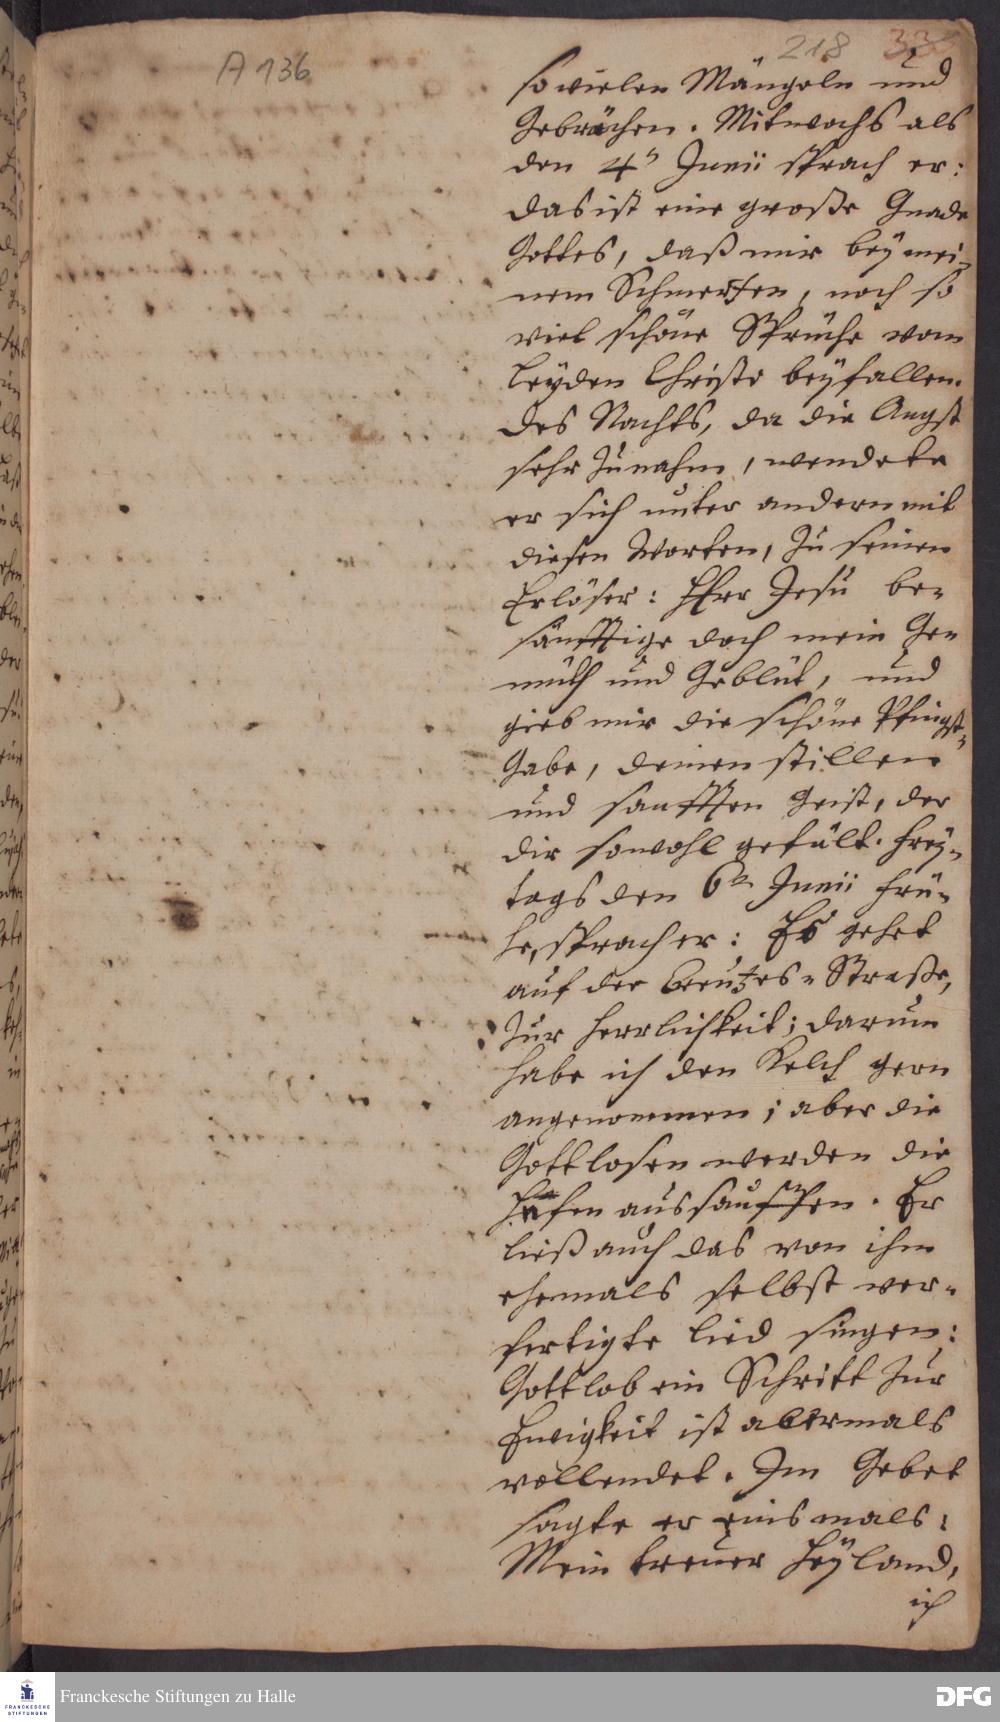 A 136
218
so vielen Mängeln und
Gebrächen. Mitwochs als
den 4n Junii sprach er:
das ist eine große Gnade
Gottes, daß mir bey mei-
nem Schmertzen, noch so
viel schöne Sprüche vom
Leyden Christo beyfallen.
Des Nachts, da die Angst
sehr zunahm, wendete
er sich unter andern mit
diesen Worten, zu seinen
Erlöser: HErr Jesu be-
sänfftige doch mein Ge-
müth und Geblüt, und
gieb mir die schöne Pfingst-
Gabe, deinen stillen
und sanfften Geist, der
dir sowohl gefält. Frey-
tags den 6n Junii frü-
he, sprach er: Es gehet
auf der Creutzes-Straße,
zur Herrlichkeit; darum
habe ich den Kelch gern
angenommen; aber die
Gottlosen werden die
Häfen aussauffen. Er
ließ auch das von ihm
ehemals selbst ver-
fertigte Lied singen:
Gottlob ein Schritt zur
Ewigkeit ist abermals
vollendet. Im Gebet
sagte er einsmals:
Mein treuer Heyland,
ich
FRANCKESCHE
STIFTUNGEN
Franckesche Stiftungen zu Halle
DFG